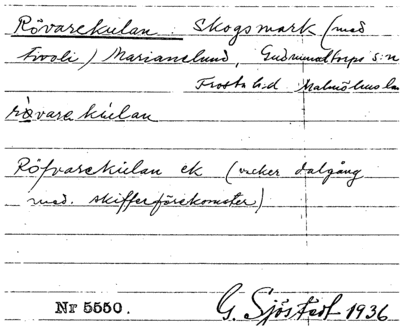 Rövarekulan. Skogsmark (med
tivoli) Marianelund, Gudmuntorps s:n
Frosta h:d Malmöhus län
rövarekúlan
Röfvarekulan ek (vacker dalgång
med. skifferförekomster)
Nr 5550.
G. Sjöstedt 1936